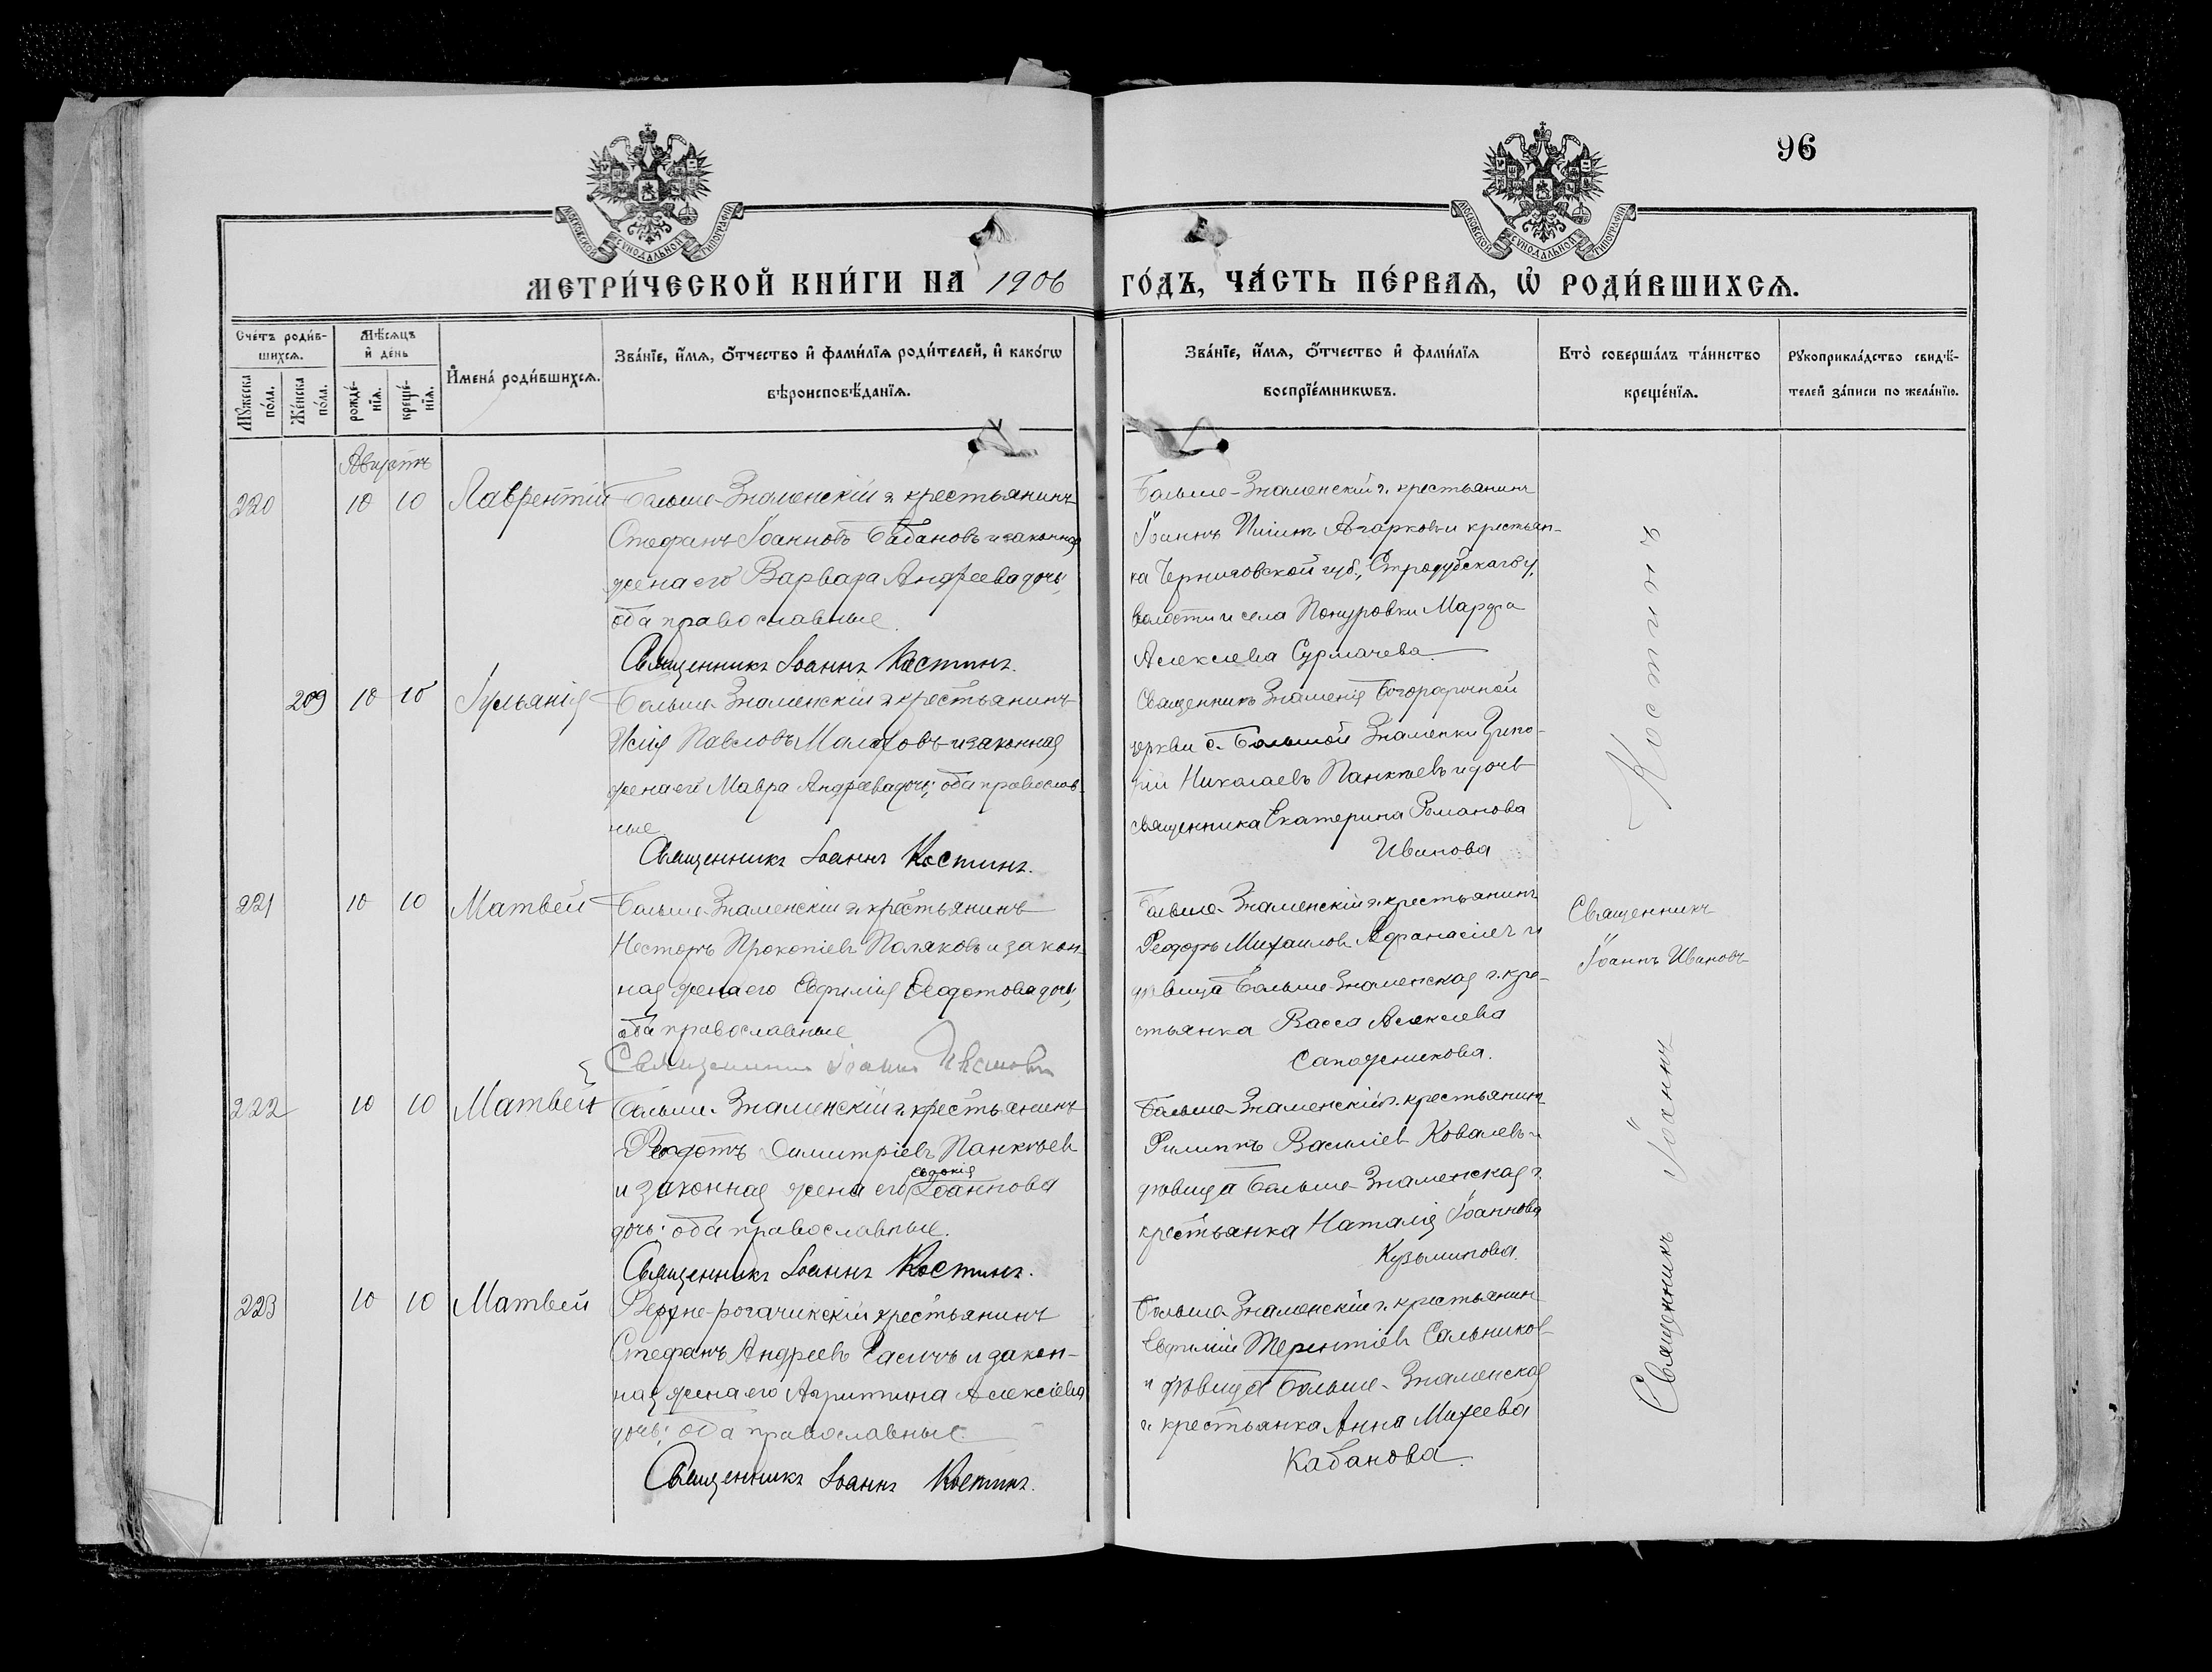 96
МОСКОВСКОЙ СѴНОДАЛЬНОЙ ТИПОГРАФІИ
МОСКОВСКОЙ СѴНОДАЛЬНОЙ ТИПОГРАФІИ
МЕТРИ́ЧЕСКОЙ КНИ́ГИ НА 1906 ГО́ДЪ, ЧА́СТЬ ПЕ́РВАѦ, Ѡ҆ РОДИ́ВШИХСѦ.
Сче́тъ роди́в-
шихсѧ.
Мꙋ́жеска по́ла.
Же́нска по́ла.
Мѣ́сѧцъ и҆ де́нь
рожде́-нїѧ.
креще́-нїѧ.
И҆мена̀ роди́вшихсѧ.
Зва́нїе, и҆́мѧ, ѻ҆́тчество и҆ фами́лїѧ роди́телей, и҆ како́гѡ
вѣроисповѣ́данїѧ.
Зва́нїе, и҆́мѧ, ѻ҆́тчество и҆ фами́лїѧ
воспрїе́мникѡвъ.
Кто̀ соверша́лъ та́инство
креще́нїѧ.
Рꙋкоприкла́дство свидѣ́-
телей за́писи по жела́нїю.
Августъ
220 10 10 Лаврентій Больше-Знаменскій г. крестьянинъ
Стефанъ Іоанновъ Бабановъ и законная
жена его Варвара Андреева дочь;
оба православные.
Священникъ Іоаннъ Костинъ.
Больше-Знаменскій г. крестьянинъ
Іоаннъ Агарковъ и крестьян-
ка Черниговской губ., Стародубскаго у.
волости и села Понуровки Марфа
Алексіева Сурмачева
209 10 10 Іуліанія Больше-Знаменскій г. крестьянинъ
Илія Павловъ Малаховъ и законная
жена его Мавра Андреева дочь; оба православ-
ные
Священникъ Іоаннъ Костинъ.
Священникъ Знаменія Богородичной
церкви с. Большой Знаменки
Николаевъ Панкѣевъ и дочь
священника Екатерина Романова
Иванова
221 10 10 Матвей Больше-Знаменскій г. крестьянинъ
Несторъ Прокопіевъ Поляковъ и закон-
ная жена его Евфимія Ѳеодотова дочь;
оба православные
Священникъ Іоаннъ Ивановъ
Больше-Знаменскій г. крестьянинъ
Ѳеодоръ Михаиловъ и
дѣвица Больше-Знаменская г. кре-
стьянка Васса Алексіева
Сапожникова.
Священникъ
Іоаннъ Ивановъ
222 10 10 Матвей Больше-Знаменскій г. крестьянинъ
Ѳеодотъ Димитріевъ Панкѣевъ
и законная жена его Евдокія Іоаннова
дочь; оба православные.
Священникъ Іоаннъ Костинъ.
Больше-Знаменскій г. крестьянинъ
Филиппъ Василіевъ Ковалевъ и
дѣвица Больше-Знаменская г.
крестьянка Наталія Іоаннова
Кузьминова.
223 10 10 Матвей Верхне-рогачикскій крестьянинъ
Стефанъ Андреевъ и закон-
ная жена его Агриппина Алексіева
дочь; оба православные.
Священникъ Іоаннъ Костинъ.
Больше-Знаменскій г. крестьянин
Евфимій Терентіевъ Сальников
и дѣвица Больше-Знаменская
г. крестьянка Анна Михеева
Кабанова.
Священникъ Іоаннъ Костинъ